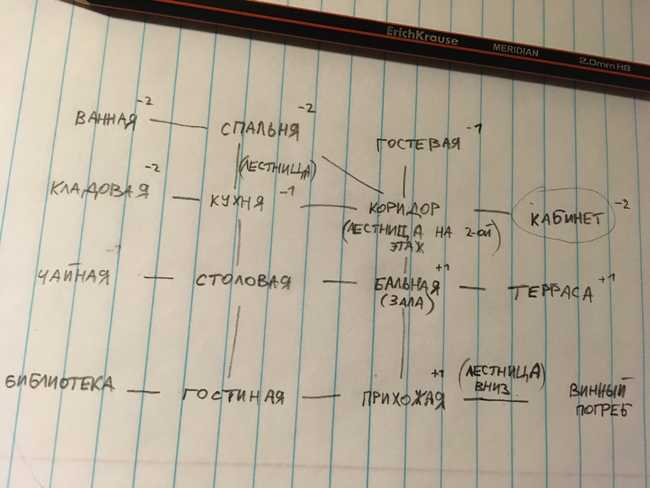 ErichKrause MERIDIAN 2.0mm HB
ВАННАЯ -2 СПАЛЬНЯ -2 ГОСТЕВАЯ -1
(ЛЕСТНИЦА)
КЛАДОВАЯ -2 КУХНЯ -1 КОРИДОР КАБИНЕТ -2
(ЛЕСТНИЦА НА 2-ОЙ)
ЭТАХ
ЧАЙНАЯ -1 СТОЛОВАЯ БАЛЬНАЯ +1 ТЕРРАСА +1
(ЗАЛА)
БИБЛИОТЕКА ГОСТИНАЯ ПРИХОЖАЯ +1 (ЛЕСТНИЦА) ВИННЫЙ
ВНИЗ ПОГРЕБ